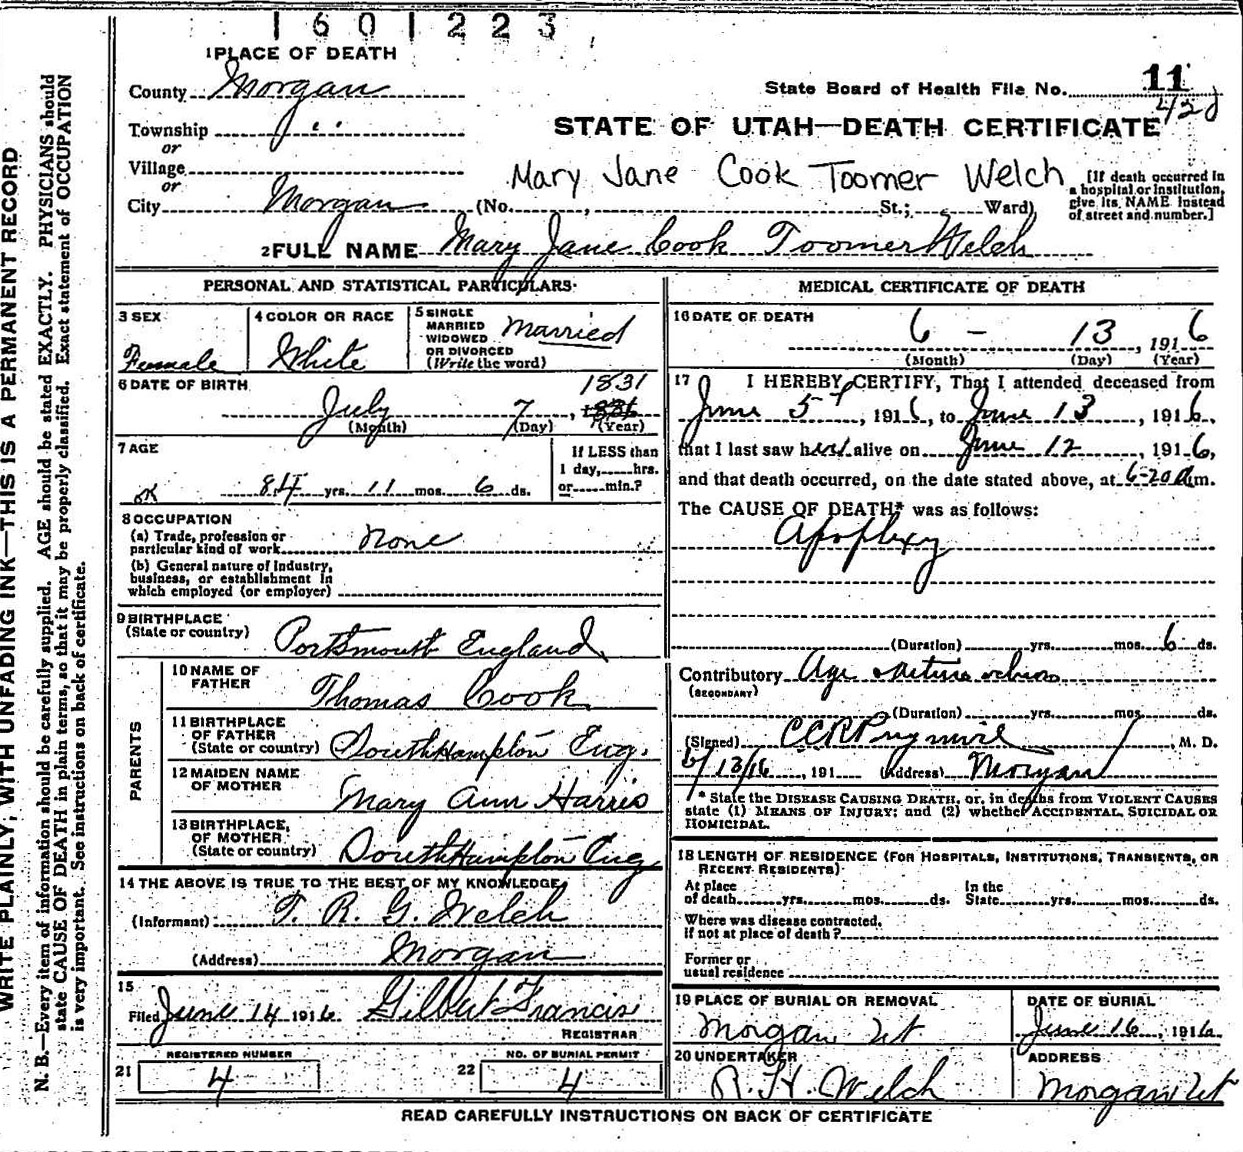 1601223
1 PLACE OF DEATH
County Morgan
State Board of Health File No. 11
428
Township " "
or
STATE OF UTAH—DEATH CERTIFICATE
Village
or
Mary Jane Cook Toomer Welch
City Morgan (No. , St.; Ward)
[If death occurred in
a hospital or institution,
give its NAME instead
of street and number.]
2 FULL NAME Mary Jane Cook Toomer Welch
PERSONAL AND STATISTICAL PARTICULARS
3 SEX
Female
4 COLOR OR RACE
White
5 SINGLE
MARRIED
WIDOWED
OR DIVORCED
(Write the word)
Married
6 DATE OF BIRTH
1831
July 7, 1836
(Month) (Day) (Year)
7 AGE
OK 84 yrs. 11 mos. 6 ds.
If LESS than
1 day, hrs.
or min.?
8 OCCUPATION
(a) Trade, profession or
particular kind of work None
(b) General nature of Industry,
business, or establishment in
which employed (or employer)
9 BIRTHPLACE
(State or country) Portsmouth England
PARENTS
10 NAME OF
FATHER Thomas Cook
11 BIRTHPLACE
OF FATHER
(State or country) SouthHampton Eng.
12 MAIDEN NAME
OF MOTHER Mary Ann Harris
13 BIRTHPLACE,
OF MOTHER
(State or country) SouthHampton Eng
14 THE ABOVE IS TRUE TO THE BEST OF MY KNOWLEDGE
(Informant) T. R. G. Welch
(Address) Morgan
15
Filed June 14 1916 Gilbert Francis
REGISTRAR
21 REGISTERED NUMBER
4
22 NO. OF BURIAL PERMIT
4
MEDICAL CERTIFICATE OF DEATH
16 DATE OF DEATH
6 - 13, 1916
(Month) (Day) (Year)
17 I HEREBY CERTIFY, That I attended deceased from
June 5, 1916, to June 13, 1916,
that I last saw her alive on June 12, 1916,
and that death occurred, on the date stated above, at 6-20 A m.
The CAUSE OF DEATH* was as follows:
Apoplexy
(Duration) yrs. mos. 6 ds.
Contributory Age
(SECONDARY)
(Duration) yrs. mos. ds.
(Signed) , M. D.
6/13/16, 191 (Address) Morgan
* State the DISEASE CAUSING DEATH, or, in deaths from VIOLENT CAUSES
state (1) MEANS OF INJURY; and (2) whether ACCIDENTAL, SUICIDAL OR
HOMICIDAL.
18 LENGTH OF RESIDENCE (FOR HOSPITALS, INSTITUTIONS, TRANSIENTS, OR
RECENT RESIDENTS)
At place
of death yrs. mos. ds.
In the
State yrs. mos. ds.
Where was disease contracted,
If not at place of death?
Former or
usual residence
19 PLACE OF BURIAL OR REMOVAL
Morgan Ut
DATE OF BURIAL
June 16, 1916
20 UNDERTAKER
R. H. Welch
ADDRESS
Morgan Ut
READ CAREFULLY INSTRUCTIONS ON BACK OF CERTIFICATE
WRITE PLAINLY, WITH UNFADING INK—THIS IS A PERMANENT RECORD
N. B.—Every item of information should be carefully supplied. AGE should be stated EXACTLY. PHYSICIANS should
state CAUSE OF DEATH in plain terms, so that it may be properly classified. Exact statement of OCCUPATION
is very important. See instructions on back of certificate.